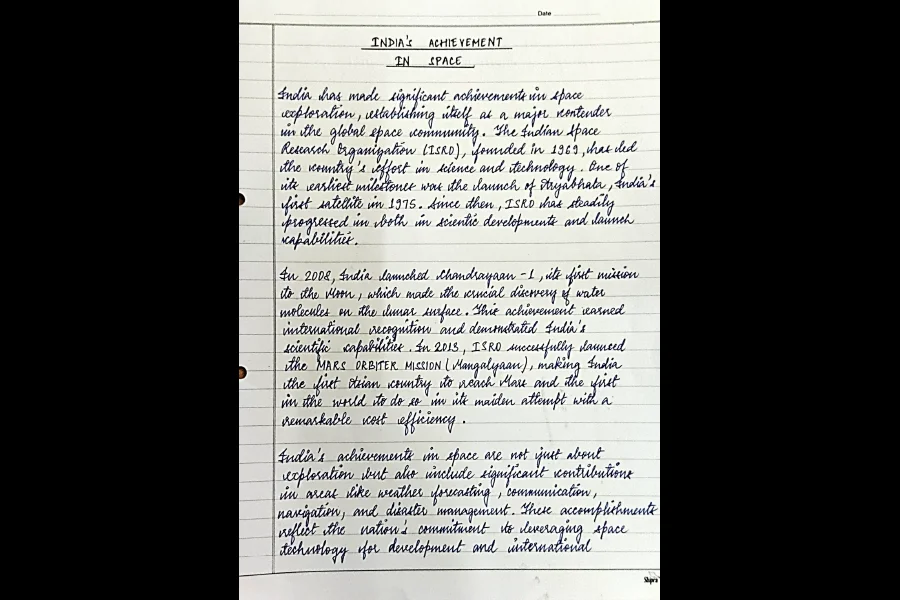 Date
INDIA'S ACHIEVEMENT
IN SPACE
India has made significant achievements in space
exploration, establishing itself as a major contender
in the global space community. The Indian Space
Research Organization (ISRO), founded in 1969, has led
the country's effort in science and technology. One of
its earliest milestones was the launch of Aryabhata, India's
first satellite in 1975. Since then, ISRO has steadily
progressed in both in scientic developments and launch
capabilities.
In 2008, India launched Chandrayaan-1, its first mission
to the Moon, which made the crucial discovery of water
molecules on the lunar surface. This achievement earned
international recognition and demonstrated India's
scientific capabilities. In 2013, ISRO successfully launced
the MARS ORBITER MISSION (Mangalyaan), making India
the first Asian country to reach Mars and the first
in the world to do so in its maiden attempt with a
remarkable cost efficiency.
India's achievements in space are not just about
exploration but also include significant contributions
in areas like weather forecasting, communication,
navigation, and disaster management. These accomplishments
reflect the nation's commitment to leveraging space
technology for development and international
Shipra